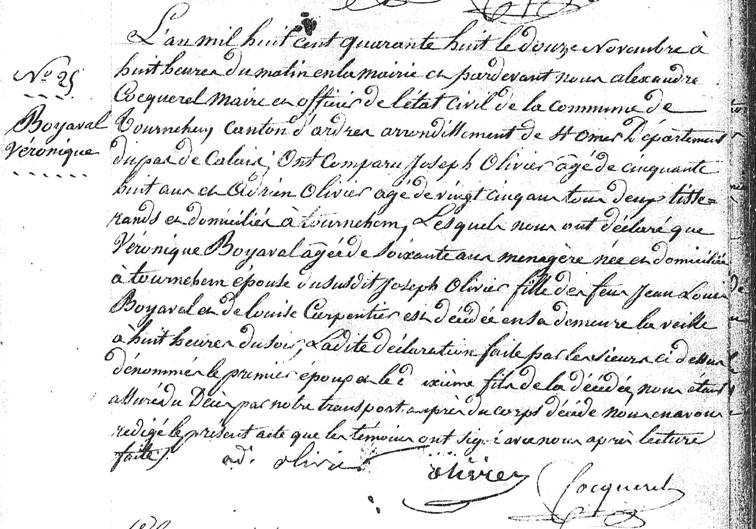 N° 25
Boyaval
Véronique
L'an mil huit cent quarante huit le douze Novembre à
huit heures du matin en la mairie et pardevant nous alexandre
Cocquerel maire et officier de l'état Civil de la commune de
Tournehem Canton d'ardres arrondissement de St Omer Département
du pas de Calais; Ont Comparu Joseph Olivier âgé de cinquante
huit ans et Adrien Olivier agé de vingt cinq ans tous deux tisse=
rands et domiciliés à tournehem, Lesquels nous ont déclaré que
Véronique Boyaval agée de soixante ans menagère née et domiciliée
à tournehem épouse du susdit Joseph Olivier fille des feus Jean Louis
Boyaval et de louise Carpentier est décédée en sa demeure la veille
à huit heures du soir; Ladite déclaration faite par les sieurs ci dessus
dénommés le premier époux et le d ixième fils de la décédée, nous étant
assuré du Décès par notre transport auprès du corps décédé nous en avons
redigé le présent acte que les temoins ont signé avec nous après lecture
faite.
ad. olivier
olivier
Cocquerel